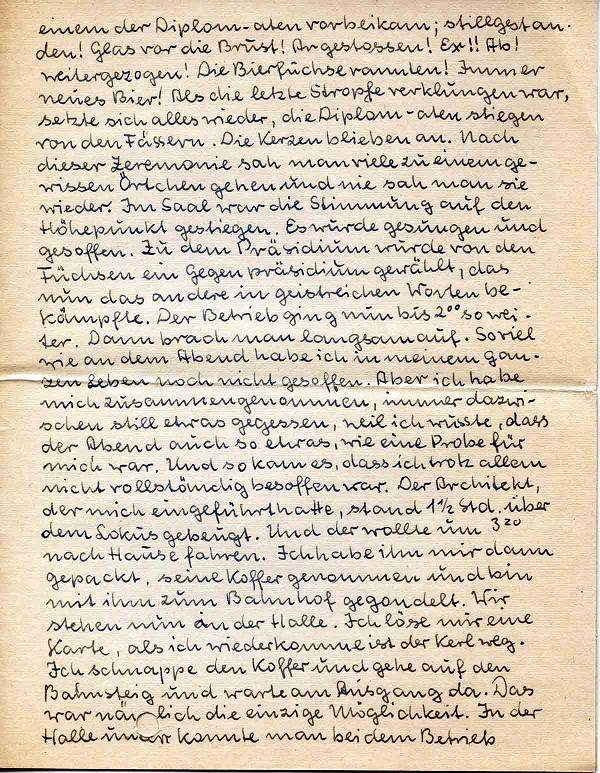 einem der Diplom-aten vorbeikam; stillgestan-
den! Glas vor die Brust! Angestossen! Ex!! Ab!
weitergezogen! Die Bierfüchse rannten! Immer
neues Bier! Als die letzte Stropfe verklungen war,
setzte sich alles wieder, die Diplom-aten stiegen
von den Fässern. Die Kerzen blieben an. Nach
dieser Zeremonie sah man viele zu einem ge-
wissen Örtchen gehen und nie sah man sie
wieder. Im Saal war die Stimmung auf den
Höhepunkt gestiegen. Es wurde gesungen und
gesoffen. Zu dem Präsidium wurde von den
Füchsen ein Gegenpräsidium gewählt, das
nun das andere in geistreichen Worten be-
kämpfte. Der Betrieb ging nun bis 2⁰⁰ so wei-
ter. Dann brach man langsam auf. Soviel
wie an dem Abend habe ich in meinem gan-
zen Leben noch nicht gesoffen. Aber ich habe
mich zusammengenommen, immer dazwi-
schen still etwas gegessen, weil ich wusste, dass
der Abend auch so etwas, wie eine Probe für
mich war. Und so kam es, dass ich trotz allem
nicht vollständig besoffen war. Der Architekt,
der mich eingeführt hatte, stand 1½ Std. über
dem Lokus gebeugt. Und der wollte um 3²⁰
nach Hause fahren. Ich habe ihn mir dann
gepackt, seine Koffer genommen und bin
mit ihm zum Bahnhof gegondelt. Wir
stehen nun in der Halle. Ich löse mir eine
Karte, als ich wiederkomme ist der Kerl weg.
Ich schnappe den Koffer und gehe auf den
Bahnsteig und warte am Ausgang da. Das
war nämlich die einzige Möglichkeit. In der
Halle unten konnte man bei dem Betrieb